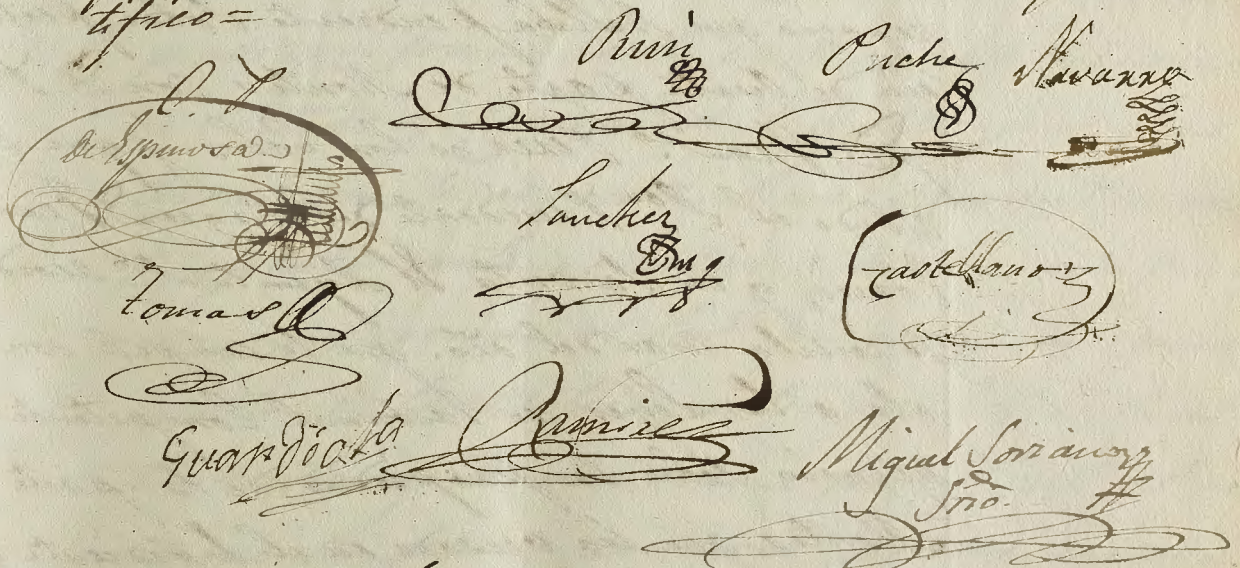 tifico=
Puche Navarro
de Espinosa
Sanchez
Castellanos
Tomas
Guardiola Ramirez
Miguel Soriano
Srio.